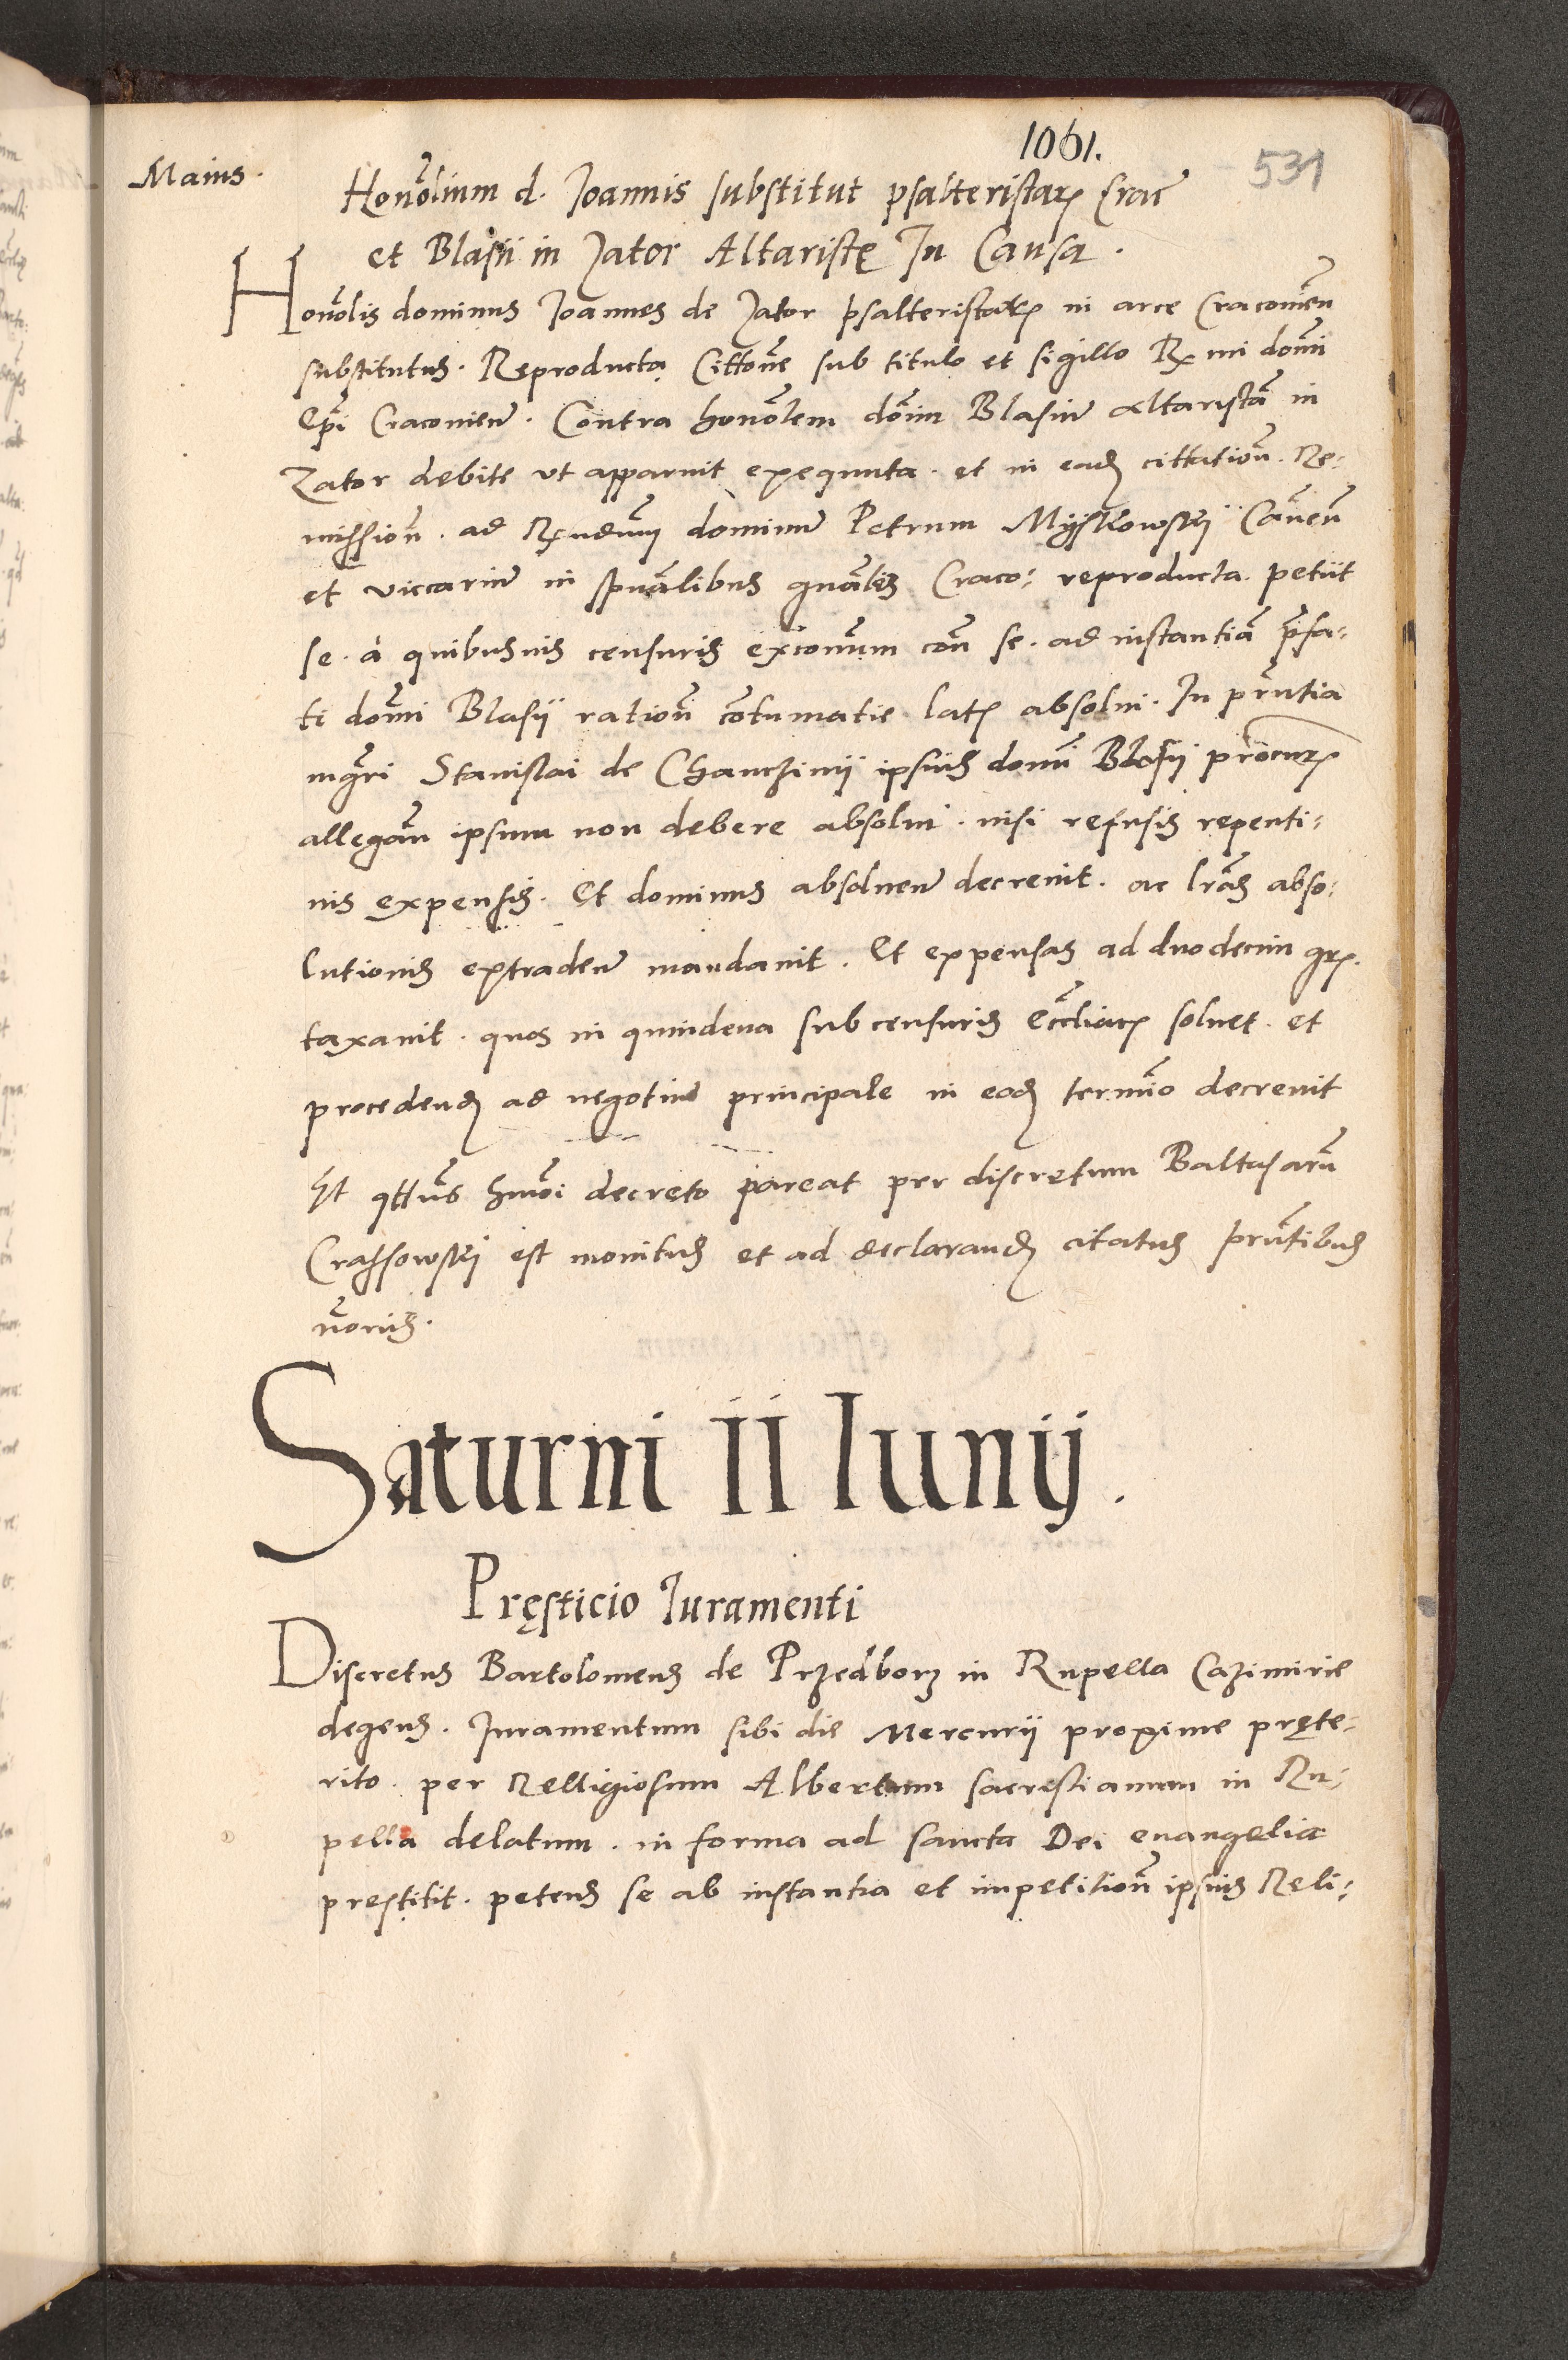 1061.
531
Maius.
Hono͞lium d. Ioannis substitut psalteristarꝫ Crac͞
et Blasii in Zator Altaristę In Causa.
Hono͞lis dominus Ioannes de Zator psalteristarꝫ in arce Cracouien͞
substitutus. Reproducta Citto͞ne sub titulo et sigillo Rx mi dom͞i
Ep͞i Cracouien͞. Contra hono͞lem do͞im Blasiu͞ altarista͞ in
Zator debite ut apparuit exequuta. et in eadꝫ cittation͞. Re-
mission͞. ad Rx͞ndum dominu͞ Petrum Myszkowski Can͞en͞
et viccariu͞ in spu͞alibus gn͞alez Craco: reproducta. petiit
se. à quibusuis censuris excom͞um con͞ se. ad instantia͞ p͞fa-
ti dom͞i Blasii ration͞ co͞tumatie latꝫ absolui. In pn͞tia
mg͞ri Stanislai de Chanczinii ipsius dom͞i Blasii procurꝫ
allegan͞ ipsum non debere absolui. nisi refusis repenti-
nis expensis. Et dominus absoluen͞ decreuit. ac lr͞as abso-
lutionis extraden͞ mandauit. Et expensas ad duodecim grꝫ.
taxauit. quos in quindena sub censuris eccl͞iarꝫ soluet. et
procedendꝫ ad negotiu͞ principale in eodꝫ termi͞o decreuit
Ut hm͞oi decreto pareat per discretum Baltasaru͞
Crassowski est monitus et ad declarandꝫ citatus pn͞tibus
n͞oriis.
Saturni II Iunij.
Pręsticio Iuramenti
Discretus Bartolomeus de Przedborz in Rupella Cazimirie
degens. Iuramentum sibi die Mercurii proxime pręte-
rito. per Relligiosum Albertum sacrestianum in Ru-
pella delatum. in forma ad sancta Dei euangelia
prestitit. petens se ab instantia et impetition͞ ipsius Reli-